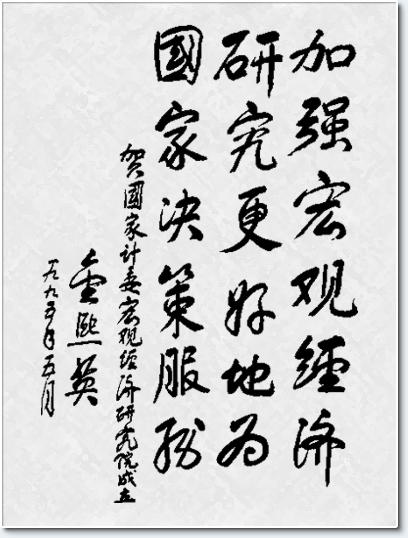 加强宏观經济
研究更好地为
國家决策服務
贺國家计委宏观经济研究院成立
金熙英
一九九五年五月